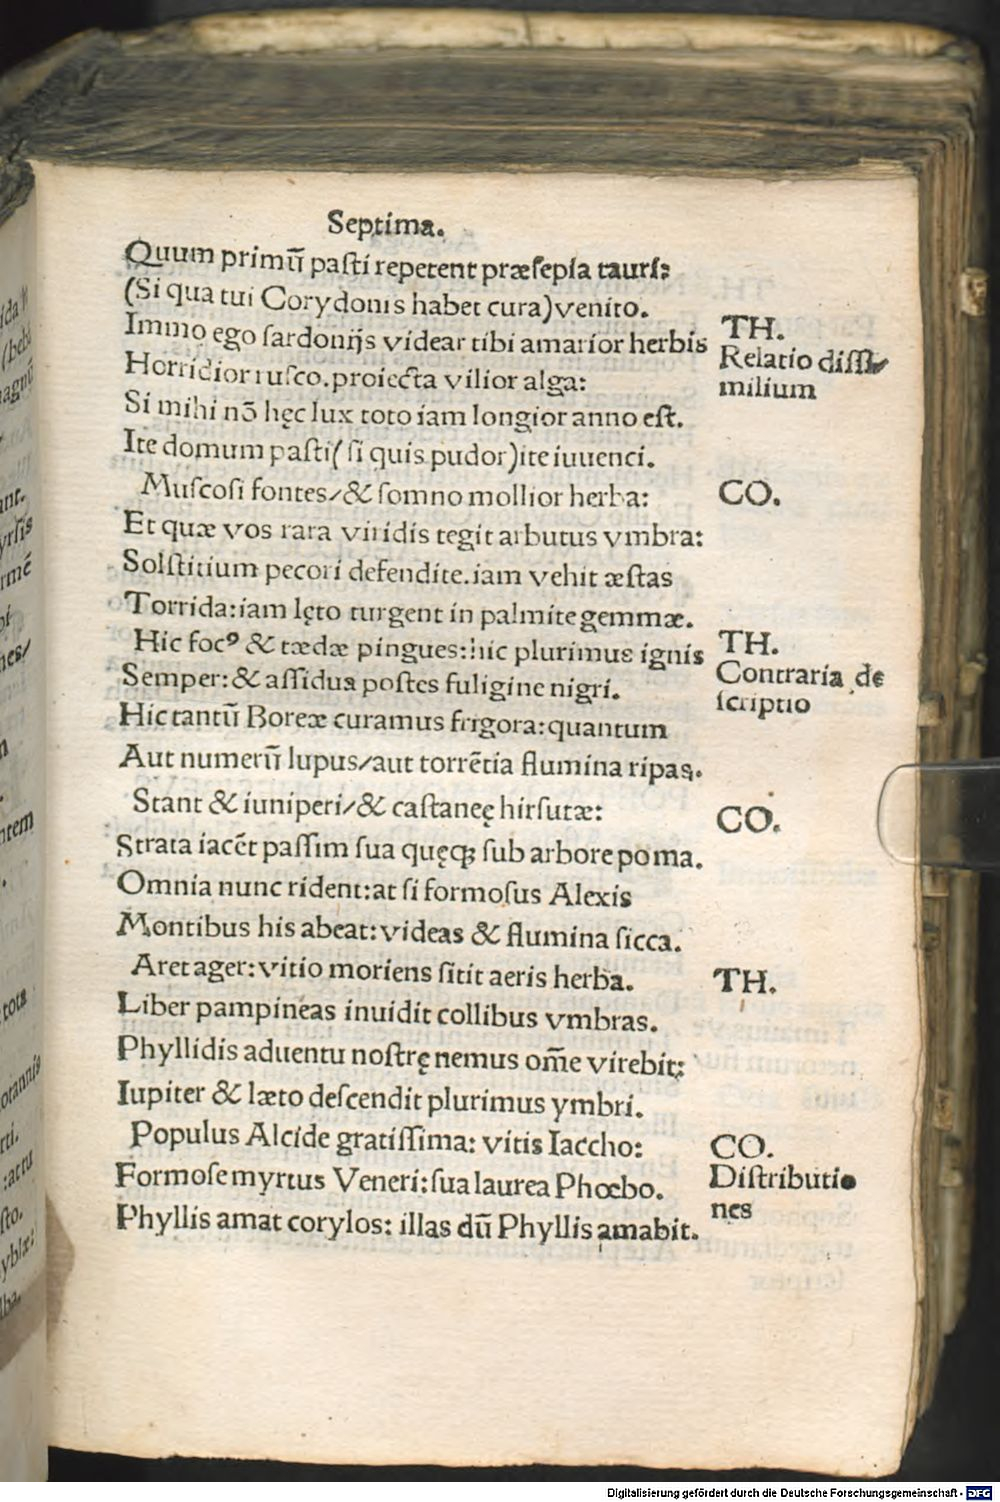 Septima.
Quum primū paſti repetent præſepia tauri:
(Si qua tui Corydonis habet cura) venito.
Immo ego ſardonijs videar tibi amarior herbis
TH.
Relatio diſſi
milium
Horridior ruſco. proiecta vilior alga:
Si mihi nō hęc lux toto iam longior anno eſt.
Ite domum paſti (ſi quis pudor) ite iuuenci.
Muſcoſi fontes/ & ſomno mollior herba:
CO.
Et quæ vos rara viridis tegit arbutus vmbra:
Solſtitium pecori defendite. iam vehit æſtas
Torrida: iam lęto turgent in palmite gemmæ.
Hic focꝰ & tædæ pingues: hic plurimus ignis
TH.
Contraria de
ſcriptio
Semper: & aſſidua poſtes fuligine nigri.
Hic tantū Boreæ curamus frigora: quantum
Aut numerū lupus/ aut torrētia flumina ripas.
Stant & iuniperi/ & caſtaneę hirſutæ:
CO.
Strata iacēt paſſim ſua quęqꝫ ſub arbore poma.
Omnia nunc rident: at ſi formoſus Alexis
Montibus his abeat: videas & flumina ſicca.
Aret ager: vitio moriens ſitit aeris herba.
TH.
Liber pampineas inuidit collibus vmbras.
Phyllidis aduentu noſtrę nemus om̄e virebit:
Iupiter & læto deſcendit plurimus ymbri.
Populus Alcide gratiſſima: vitis Iaccho:
CO.
Diſtributio
nes
Formoſe myrtus Veneri: ſua laurea Phœbo.
Phyllis amat corylos: illas dū Phyllis amabit.
Digitalisierung gefördert durch die Deutsche Forschungsgemeinschaft - DFG